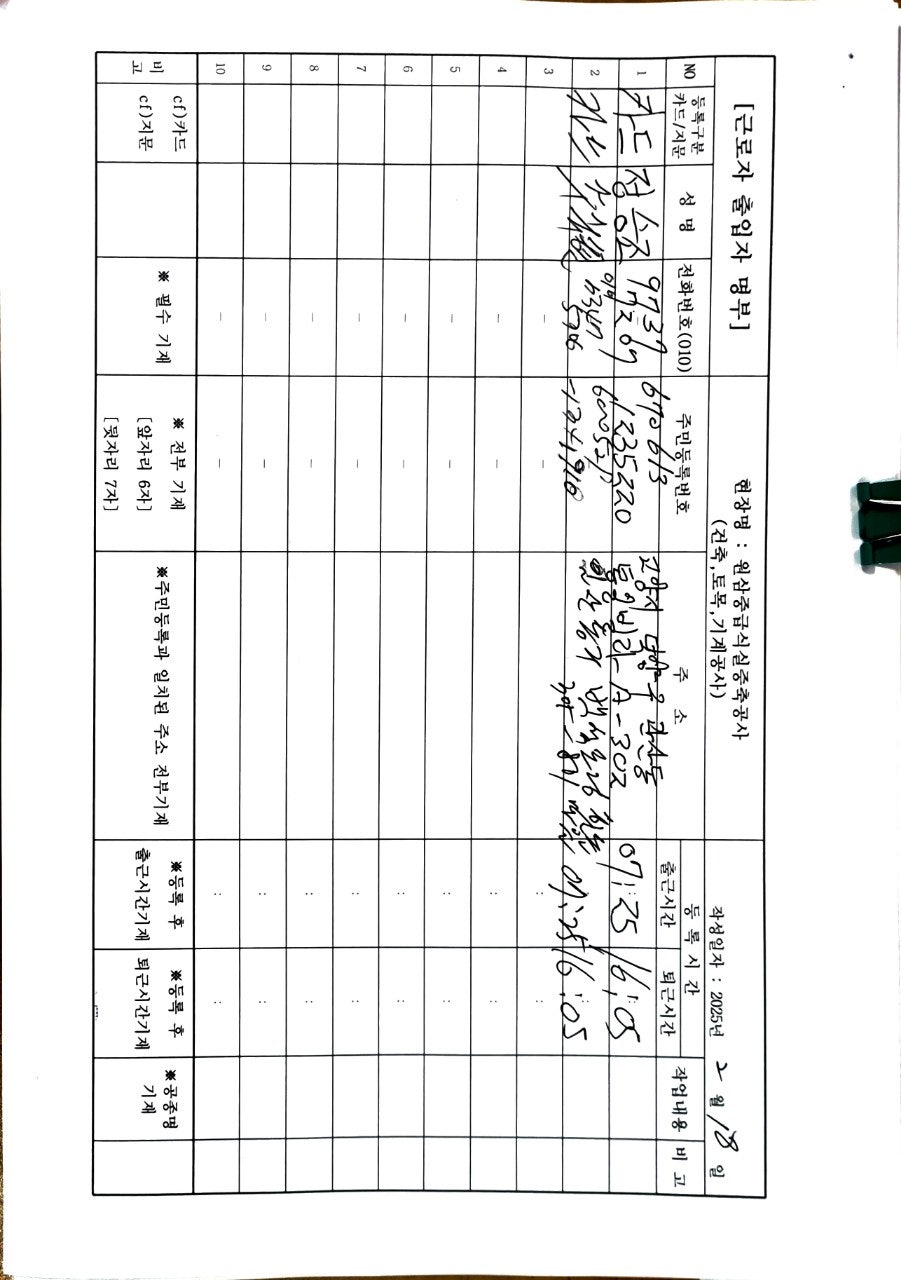 [근로자 출입자 명부]
현장명 : 원산중급식실증축공사
(건축,토목,기계공사)
작성일자 : 2025년 2월 18일
NO
등록구분
카드/지문
성 명
전화번호(010)
주민등록번호
주 소
등 록 시 간
출근시간
퇴근시간
작업내용
비 고
1
카드
9737
670613
고양시 덕양구 관산동
A-302
07:25
16:05
2
07:25
16:05
3
-
-
:
:
4
-
-
:
:
5
-
-
:
:
6
-
-
:
:
7
-
-
:
:
8
-
-
:
:
9
-
-
:
:
10
-
-
:
:
비
고
cf)카드
cf)지문
※ 필수 기재
※ 전부 기재
[앞자리 6자]
[뒷자리 7자]
※주민등록과 일치된 주소 전부기재
※등록 후
출근시간기재
※등록 후
퇴근시간기재
※공종명
기재